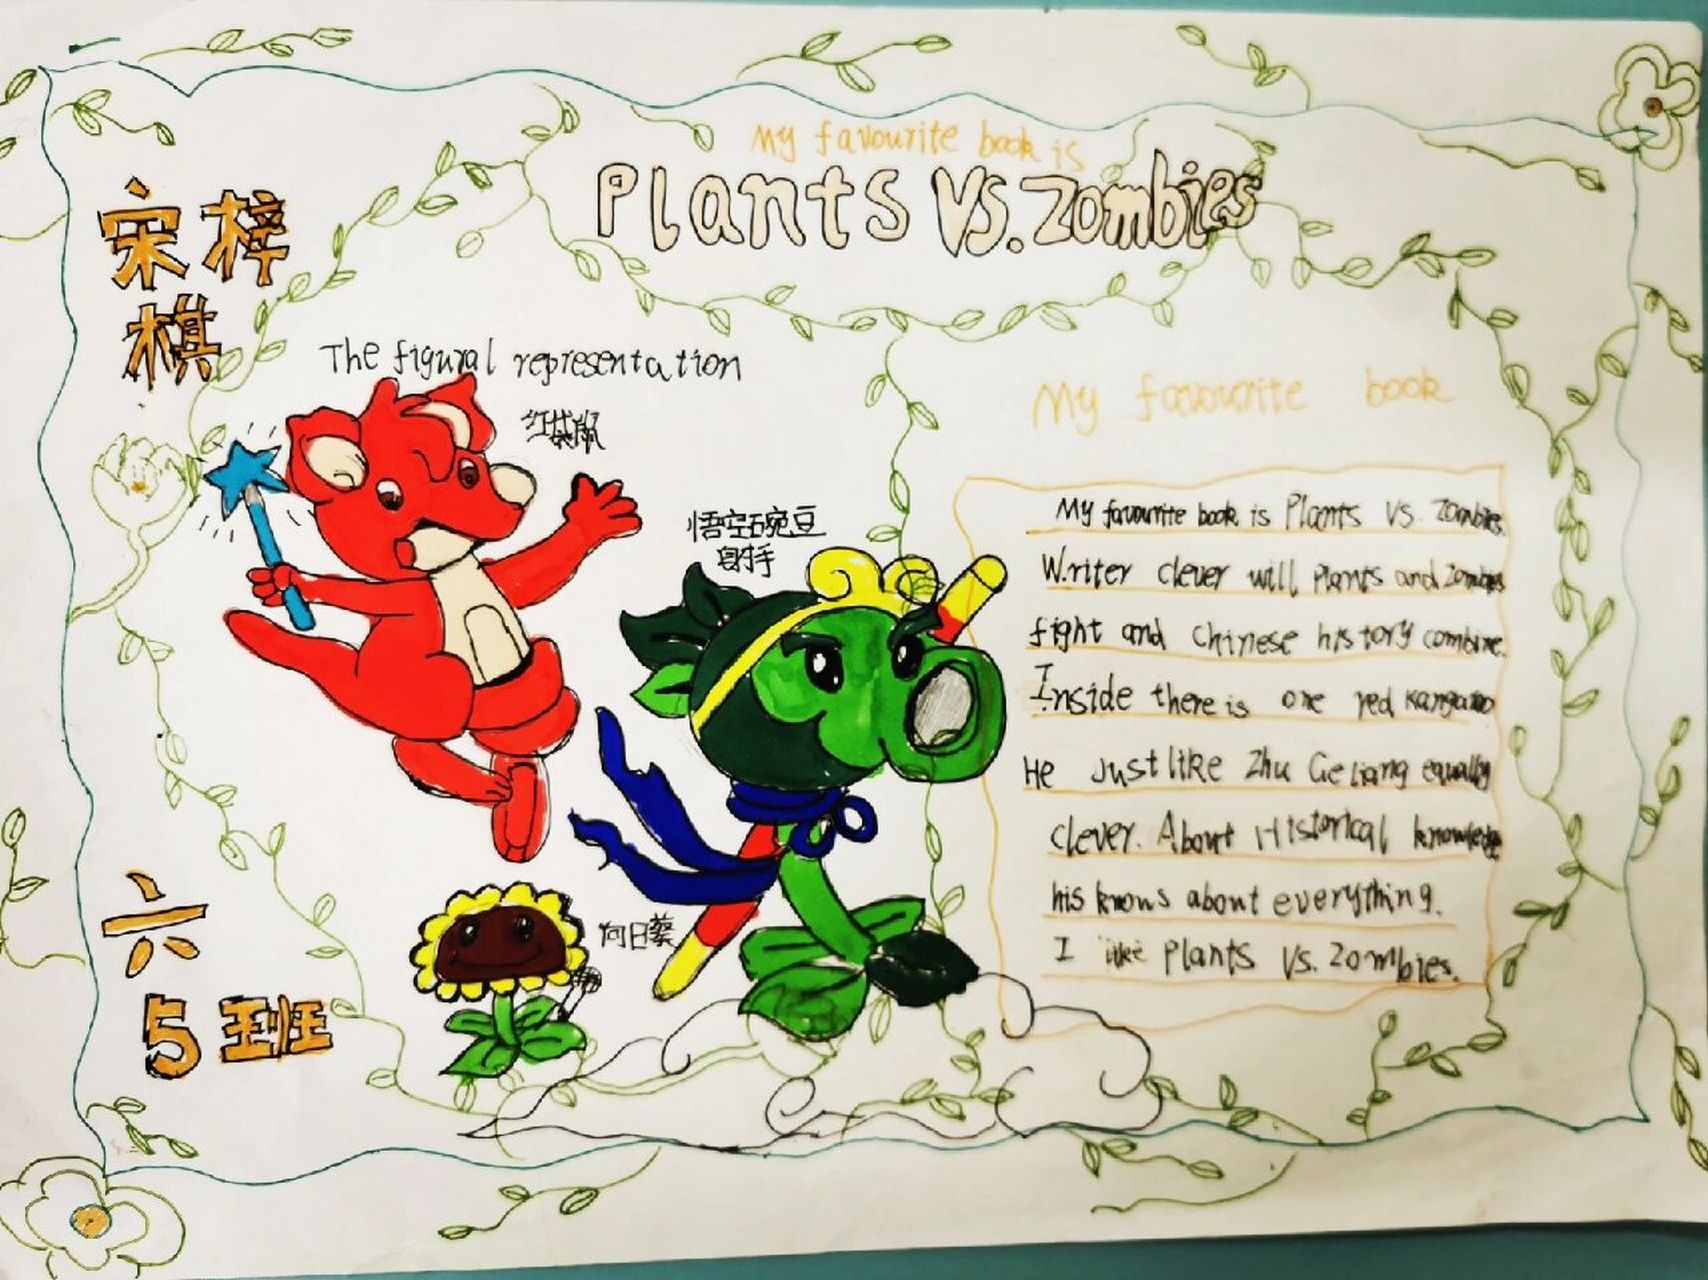 My favourite book is
Plants Vs. Zombies
宋梓
棋
The figural representation
红袋鼠
悟空碗豆
射手
向日葵
六
5班
My favourite book
My favourite book is Plants Vs. Zombies.
Writer clever will Plants and Zombies
fight and Chinese history combine.
Inside there is one red kangaroo
He Just like Zhu Ge Liang equally
clever. About Historical knowledge
his knows about everything.
I like Plants Vs. Zombies.